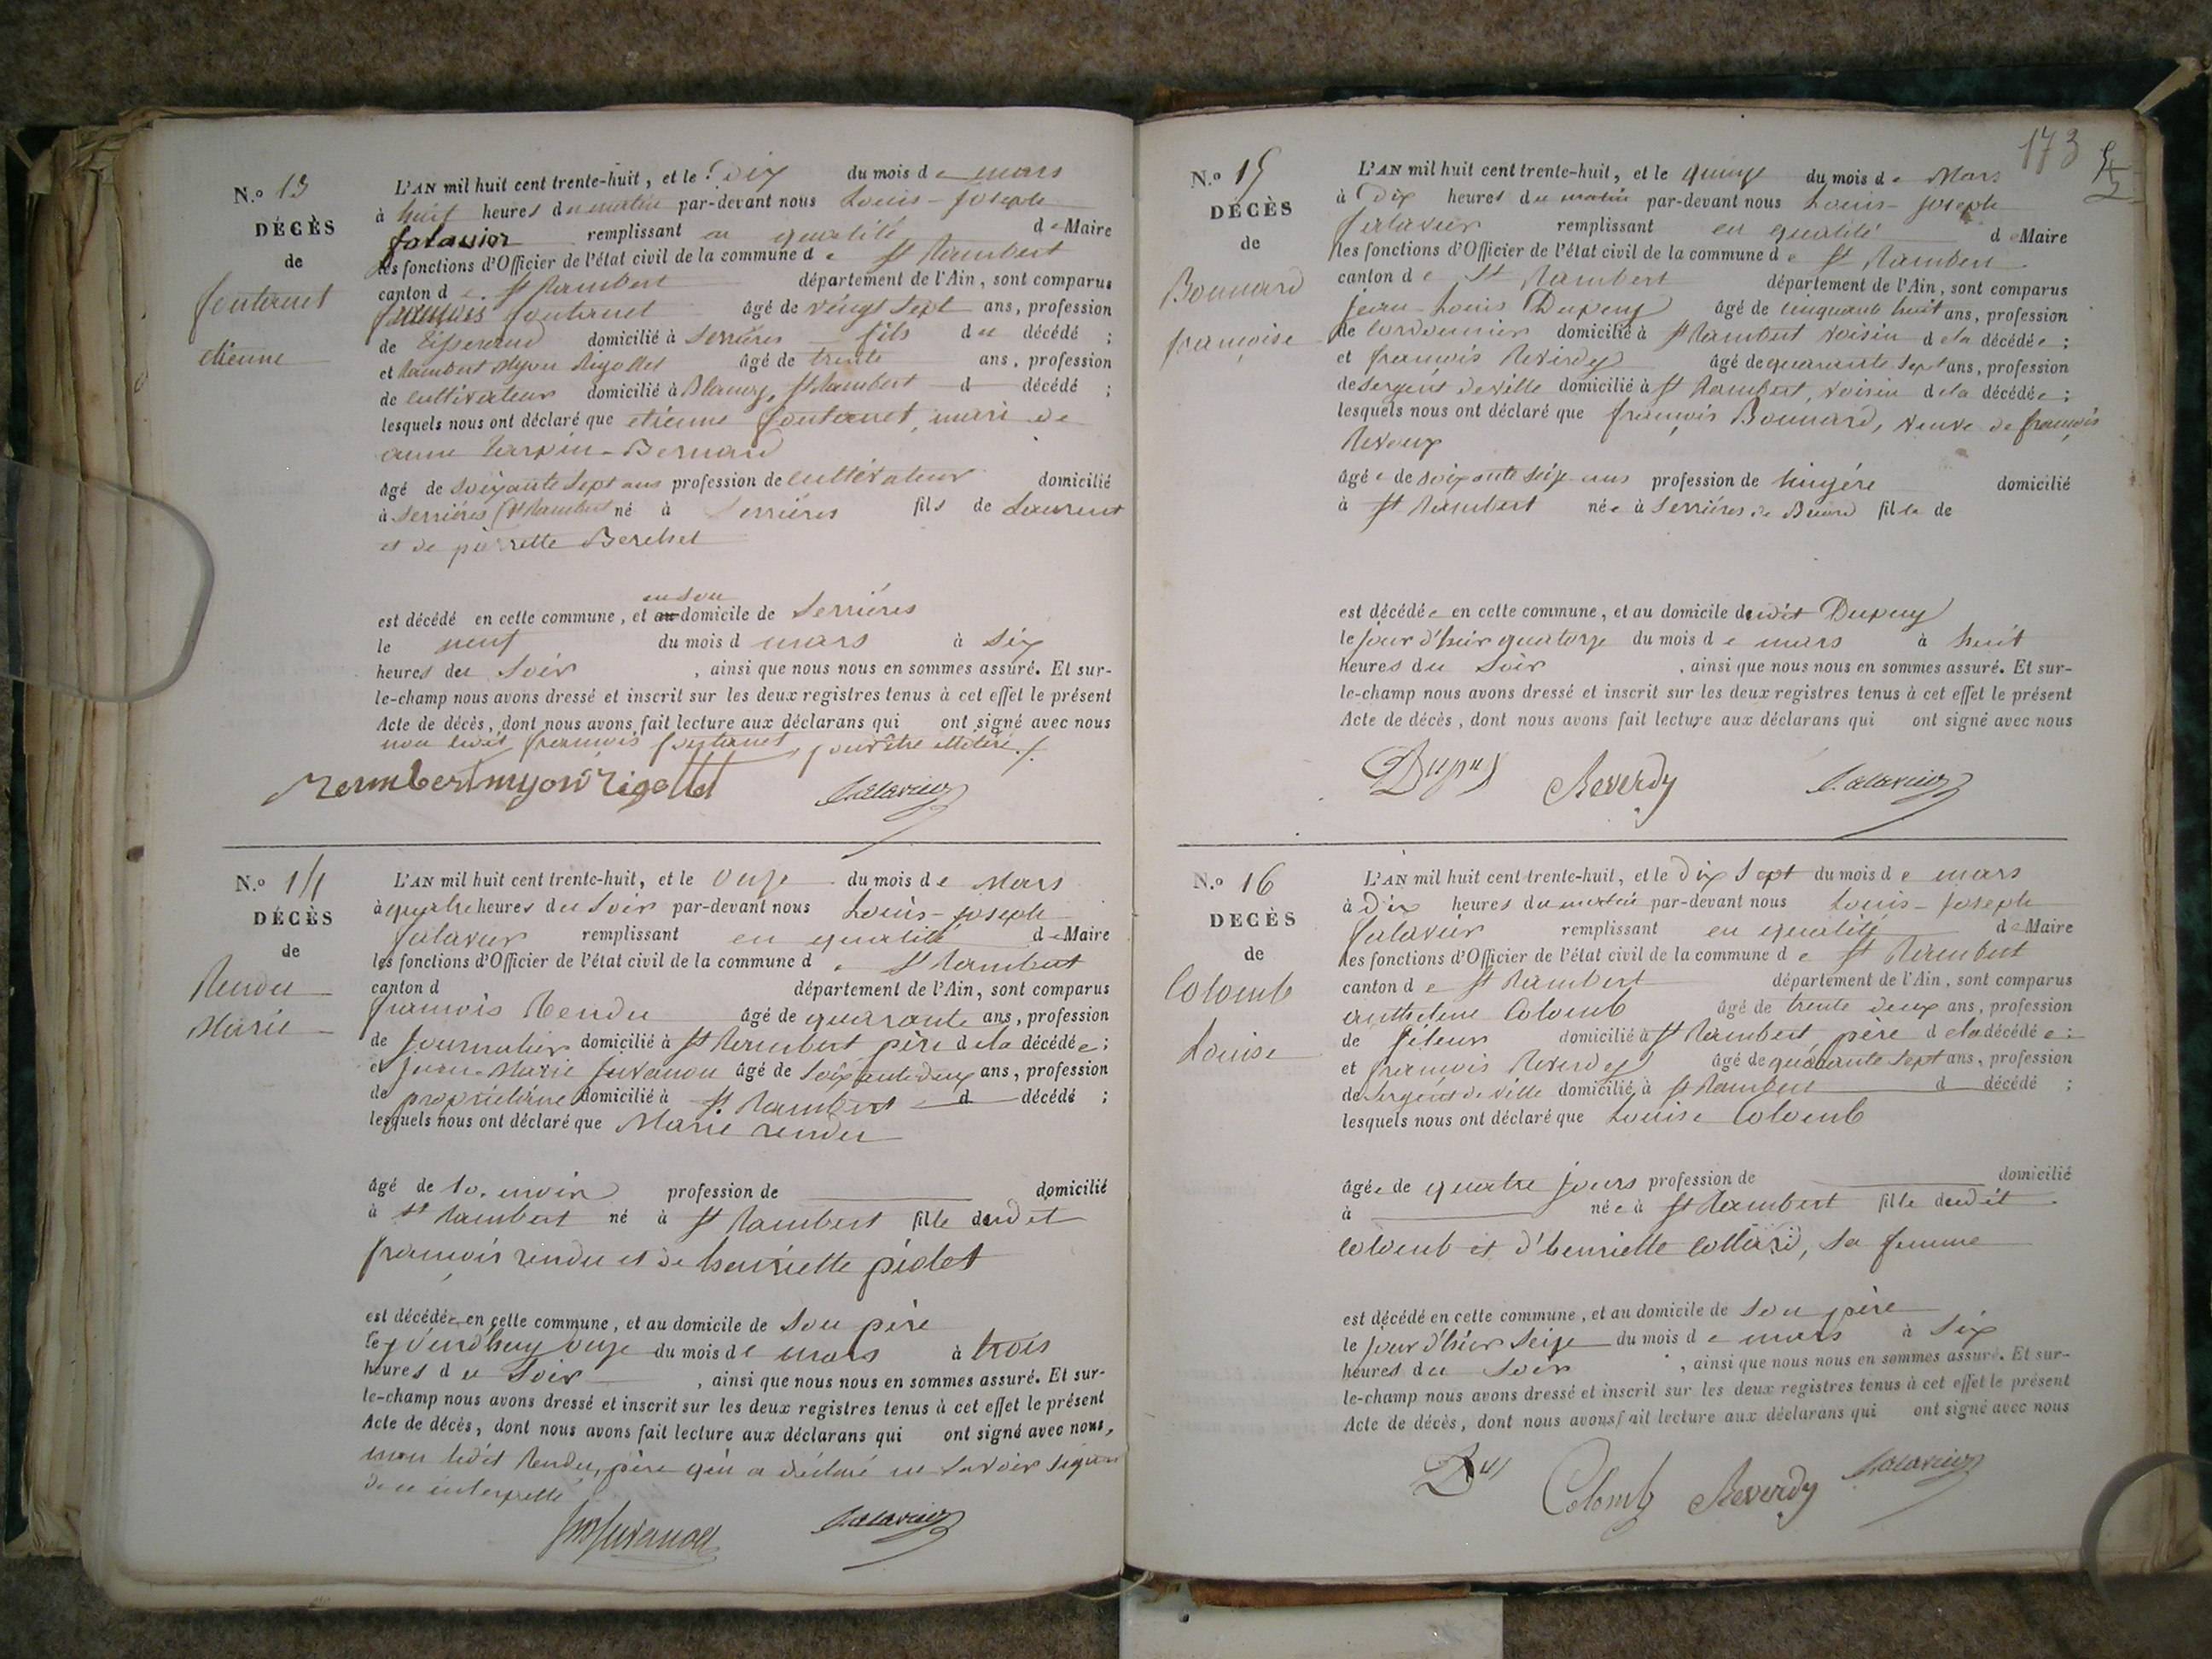 N.o 13
DÉCÈS
de
fontanet
etienne
L'AN mil huit cent trente-huit, et le Dix du mois de mars
à huit heures du matin par-devant nous Louis-Joseph
falavier remplissant en qualité de Maire
les fonctions d'Officier de l'état civil de la commune de St Rambert
canton de St Rambert département de l'Ain, sont comparus
françois fontanet âgé de vingt sept ans, profession
de Tisserand domicilié à Serrières fils du décédé ;
et Rambert Myon Rigollet âgé de trente ans, profession
de cultivateur domicilié à Blanaz, St Rambert d décédé ;
lesquels nous ont déclaré que etienne fontanet, mari de
anne Tarpin-Bernard
âgé de soixante sept ans profession de cultivateur domicilié
à Serrières (St Rambert né à Serrières fils de Laurent
et de pierrette Berchet
en son
est décédé en cette commune, et au domicile de Serrières
le neuf du mois d mars à six
heures du soir , ainsi que nous nous en sommes assuré. Et sur-
le-champ nous avons dressé et inscrit sur les deux registres tenus à cet effet le présent
Acte de décès, dont nous avons fait lecture aux déclarans qui ont signé avec nous
non ledit françois fontanet pour être illitéré ./.
Rambert myon Rigollet
falavier
N.o 14
DÉCÈS
de
Rendu
Marie
L'AN mil huit cent trente-huit, et le Onze du mois de Mars
à quatre heures du soir par-devant nous Louis-Joseph
falavier remplissant en qualité de Maire
les fonctions d'Officier de l'état civil de la commune d e St Rambert
canton d département de l'Ain, sont comparus
françois Rendu âgé de quarante ans, profession
de Journalier domicilié à St Rambert père de la décédée ;
et Jean-Marie Juvanon âgé de soixante deux ans, profession
de propriétaire domicilié à St Rambert d décédé ;
lesquels nous ont déclaré que Marie rendu
âgé de 10. mois profession de domicilié
à St Rambert né à St Rambert fille dudit
françois rendu et de henriette piolet
est décédée en cette commune, et au domicile de Son père
le jourd'huy onze du mois de mars à trois
heures du Soir , ainsi que nous nous en sommes assuré. Et sur-
le-champ nous avons dressé et inscrit sur les deux registres tenus à cet effet le présent
Acte de décès, dont nous avons fait lecture aux déclarans qui ont signé avec nous,
non ledit Rendu, père qui a déclaré ne savoir signer
de ce interpellé
Juvanon
falavier
173
N.o 15
DÉCÈS
de
Bonnard
françoise
L'AN mil huit cent trente-huit, et le quinze du mois de Mars
à Dix heures du matin par-devant nous Louis-Joseph
falavier remplissant en qualité de Maire
les fonctions d'Officier de l'état civil de la commune de St Rambert
canton de St Rambert département de l'Ain, sont comparus
Jean-Louis Dupuy âgé de cinquante huit ans, profession
de cordonnier domicilié à St Rambert voisin de la décédée ;
et françois Reverdy âgé de quarante sept ans, profession
de Sergent de ville domicilié à St Rambert, voisin de la décédée ;
lesquels nous ont déclaré que françois Bonnard, veuve de françois
Revoux
âgée de soixante seize ans profession de lingère domicilié
à St Rambert née à Serrières de Briord fille de
est décédée en cette commune, et au domicile dudit Dupuy
le jour d'hier quatorze du mois de mars à huit
heures du soir , ainsi que nous nous en sommes assuré. Et sur-
le-champ nous avons dressé et inscrit sur les deux registres tenus à cet effet le présent
Acte de décès, dont nous avons fait lecture aux déclarans qui ont signé avec nous
Dupuy Reverdy falavier
N.o 16
DÉCÈS
de
Colomb
Louise
L'AN mil huit cent trente-huit, et le Dix Sept du mois de mars
à Dix heures du matin par-devant nous Louis-Joseph
falavier remplissant en qualité de Maire
les fonctions d'Officier de l'état civil de la commune de St Rambert
canton de St Rambert département de l'Ain, sont comparus
anthelme Colomb âgé de trente deux ans, profession
de fileur domicilié à St Rambert père de la décédée ;
et françois Reverdy âgé de quarante Sept ans, profession
de Sergent de ville domicilié à St Rambert d décédé ;
lesquels nous ont déclaré que Louise Colomb
âgée de quatre jours profession de domicilié
à née à St Rambert fille dudit
colomb et d'henriette Collard, sa femme
est décédé en cette commune, et au domicile de Son père
le jour d'hier seize du mois de mars à six
heures du soir , ainsi que nous nous en sommes assuré. Et sur-
le-champ nous avons dressé et inscrit sur les deux registres tenus à cet effet le présent
Acte de décès, dont nous avons fait lecture aux déclarans qui ont signé avec nous
Du Colomb Reverdy falavier